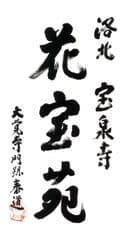 洛北 宝泉寺
花宝苑
大覚寺門跡